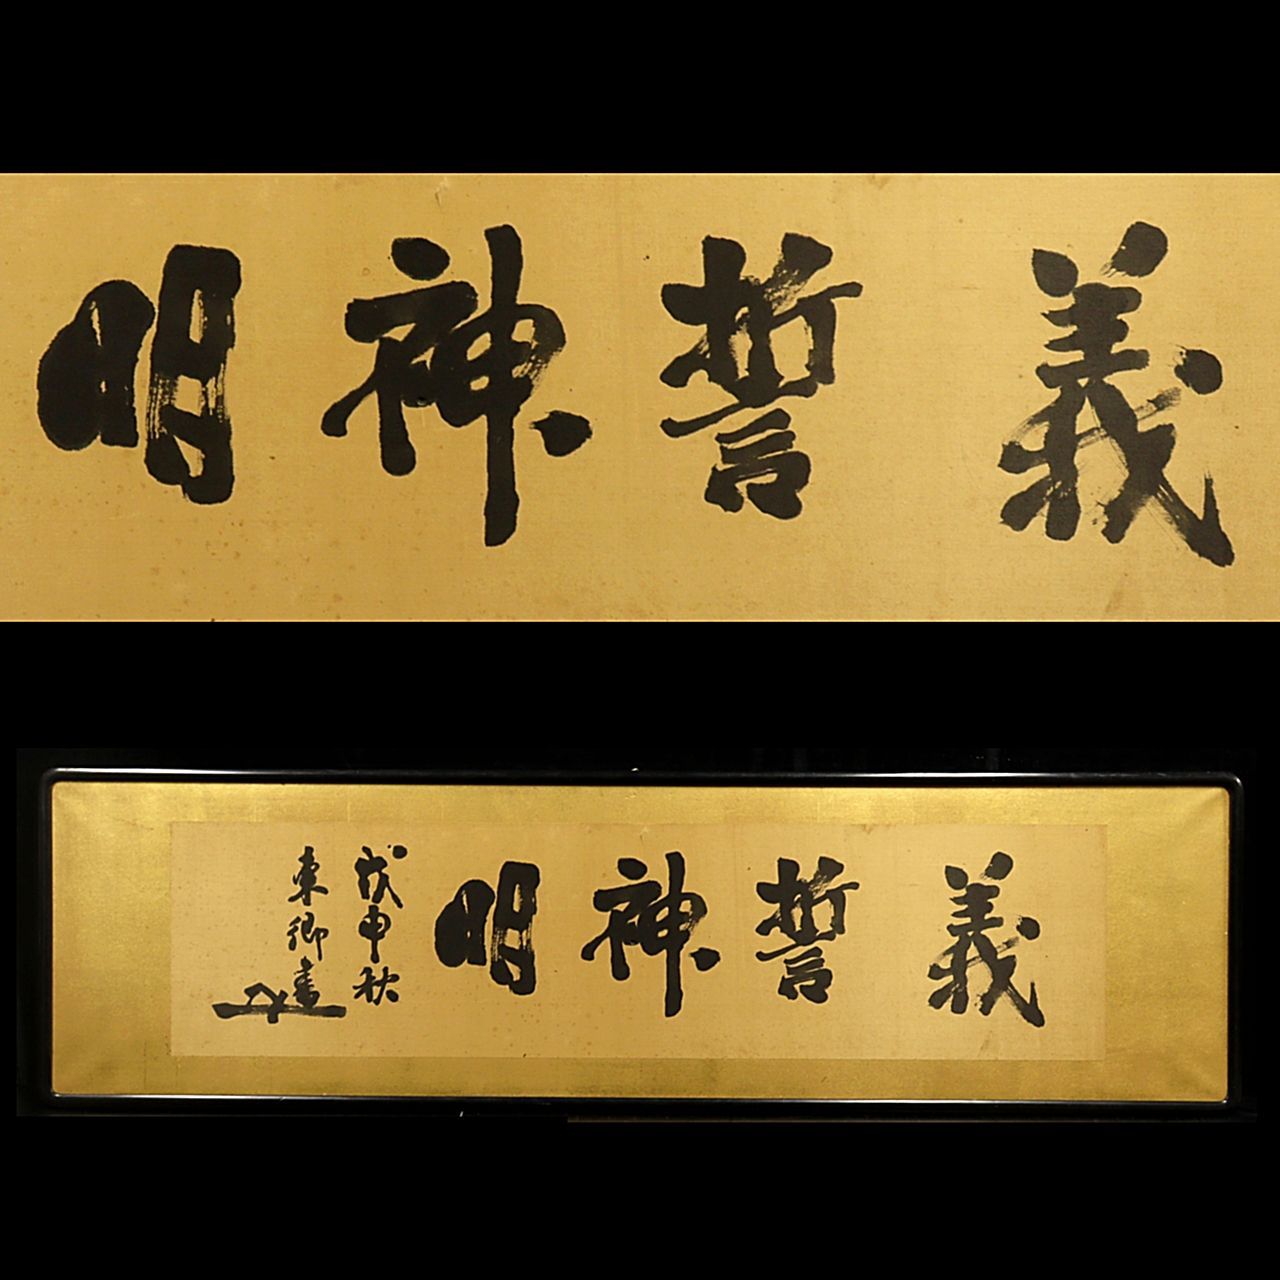 義誓神明
義誓神明
戊申秋
東郷書